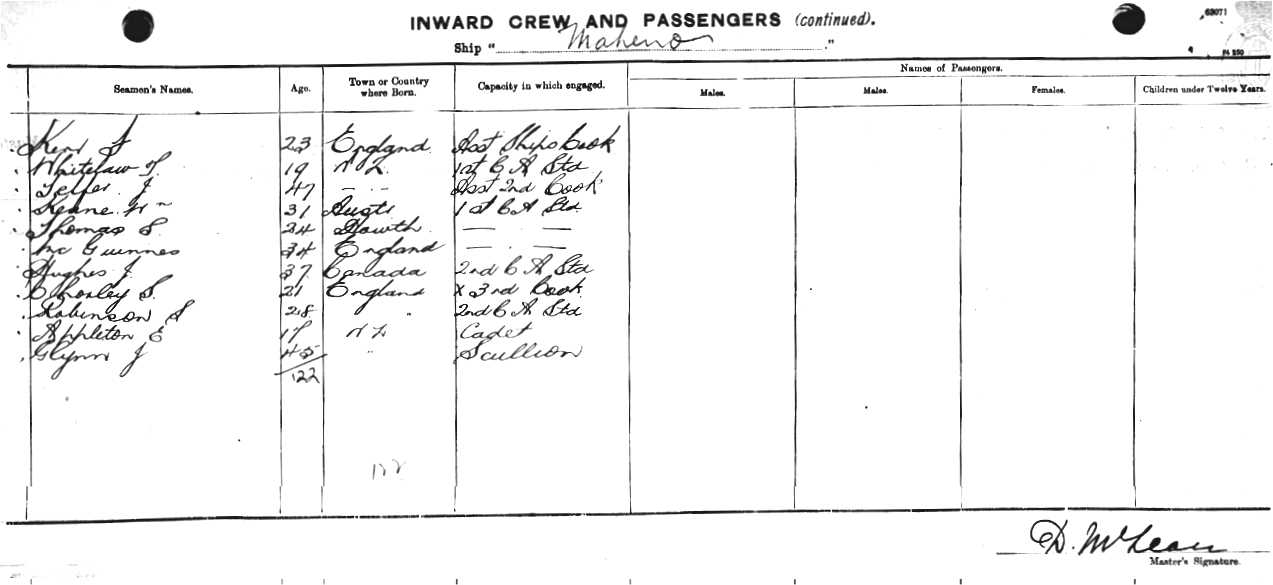 INWARD CREW AND PASSENGERS (continued).
63071
Ship "Maheno"
Names of Passengers.
Seamen's Names. Age. Town or Country where Born. Capacity in which engaged. Males. Males. Females. Children under Twelve Years.
23 England Asst Ships Cook
Whitelaw T. 19 N Z. 1st C A Std
Telfer J 47 - - Asst 2nd Cook
Keane Wm 31 Austr 1st C A Std
Thomas S. 34 Howth — . —
Mc Guinnes 34 England — . —
Hughes J. 37 Canada 2nd C A Std
Chorley S. 21 England x 3rd Cook
Robinson S 28 " 2nd C A Std
Appleton E 17 N Z Cadet
Glynn J 45 " Scullion
122
122
D. McLean
Master's Signature.